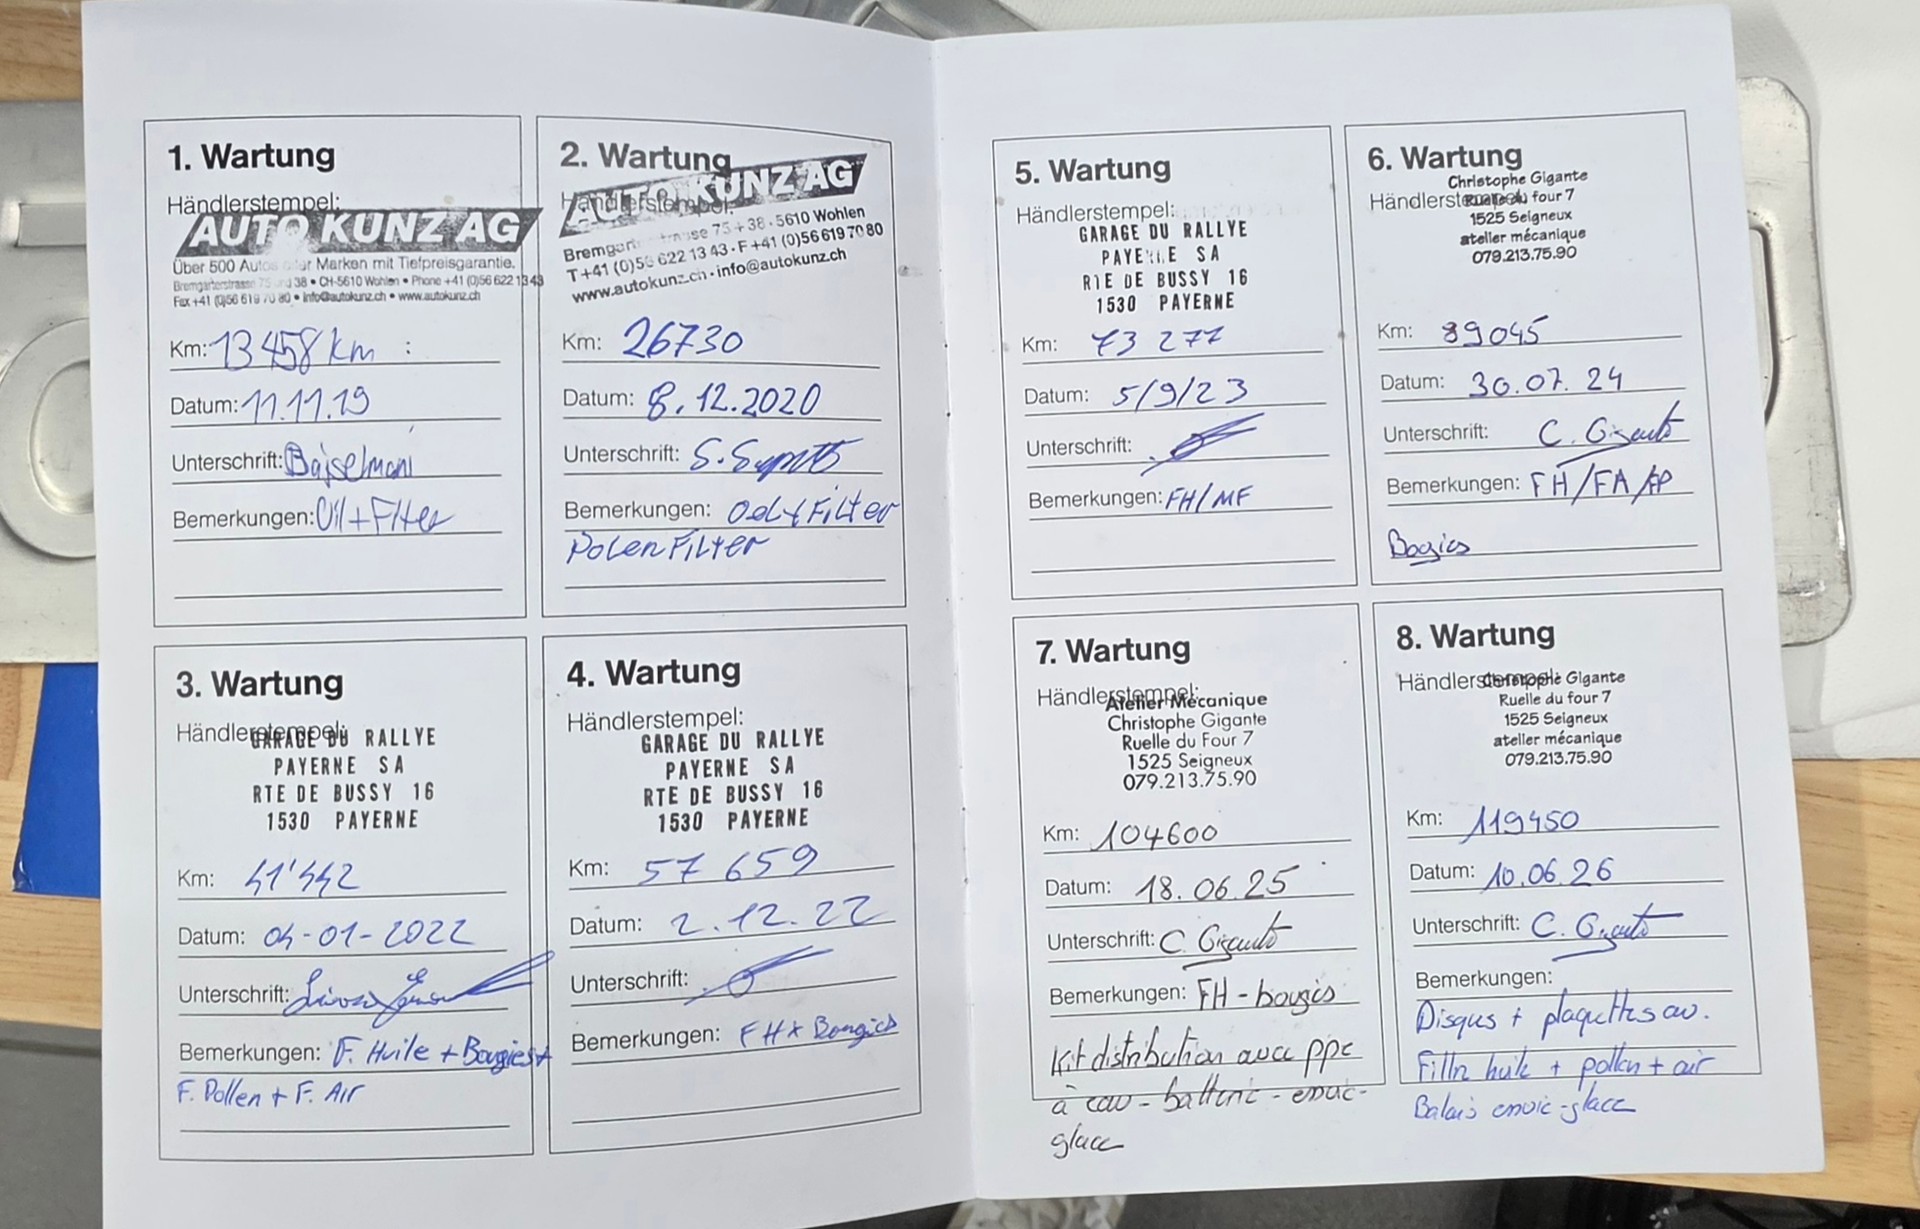 1. Wartung
Händlerstempel:
AUTO KUNZ AG
Über 500 Autos aller Marken mit Tiefpreisgarantie.
Bremgarterstrasse 75 und 38 • CH-5610 Wohlen • Phone +41 (0)56 622 13 43
Fax +41 (0)56 619 70 80 • info@autokunz.ch • www.autokunz.ch
Km: 13458 km :
Datum: 11.11.19
Unterschrift:
Bemerkungen: Oil + Filter
2. Wartung
Händlerstempel:
AUTO KUNZ AG
Bremgarterstrasse 75 + 38 • 5610 Wohlen
T +41 (0)56 622 13 43 • F +41 (0)56 619 70 80
www.autokunz.ch • info@autokunz.ch
Km: 26730
Datum: 8.12.2020
Unterschrift: S.
Bemerkungen: Filter
Polen Filter
3. Wartung
Händlerstempel:
GARAGE DU RALLYE
PAYERNE SA
RTE DE BUSSY 16
1530 PAYERNE
Km: 41'442
Datum: 04-01-2022
Unterschrift:
Bemerkungen: F. Huile + Bougies +
F. Pollen + F. Air
4. Wartung
Händlerstempel:
GARAGE DU RALLYE
PAYERNE SA
RTE DE BUSSY 16
1530 PAYERNE
Km: 57 659
Datum: 2.12.22
Unterschrift:
Bemerkungen: FH + Bougies
5. Wartung
Händlerstempel:
GARAGE DU RALLYE
PAYERNE SA
RTE DE BUSSY 16
1530 PAYERNE
Km: 73 277
Datum: 5/9/23
Unterschrift:
Bemerkungen: FH/MF
6. Wartung
Händlerstempel:
Christophe Gigante
Ruelle du four 7
1525 Seigneux
atelier mécanique
079.213.75.90
Km: 89045
Datum: 30.07.24
Unterschrift: C. Gigante
Bemerkungen: FH/FA/FP
Bougies
7. Wartung
Händlerstempel:
Atelier Mécanique
Christophe Gigante
Ruelle du Four 7
1525 Seigneux
079.213.75.90
Km: 104600
Datum: 18.06.25
Unterschrift: C. Gigante
Bemerkungen: FH - bougis
Kit distribution avec ppe
à eau - batterie - essuie-
glace
8. Wartung
Händlerstempel:
Christophe Gigante
Ruelle du four 7
1525 Seigneux
atelier mécanique
079.213.75.90
Km: 119450
Datum: 10.06.26
Unterschrift: C. Gigante
Bemerkungen:
Disques + plaquettes av.
Filtre huile + pollen + air
Balais essuie-glace